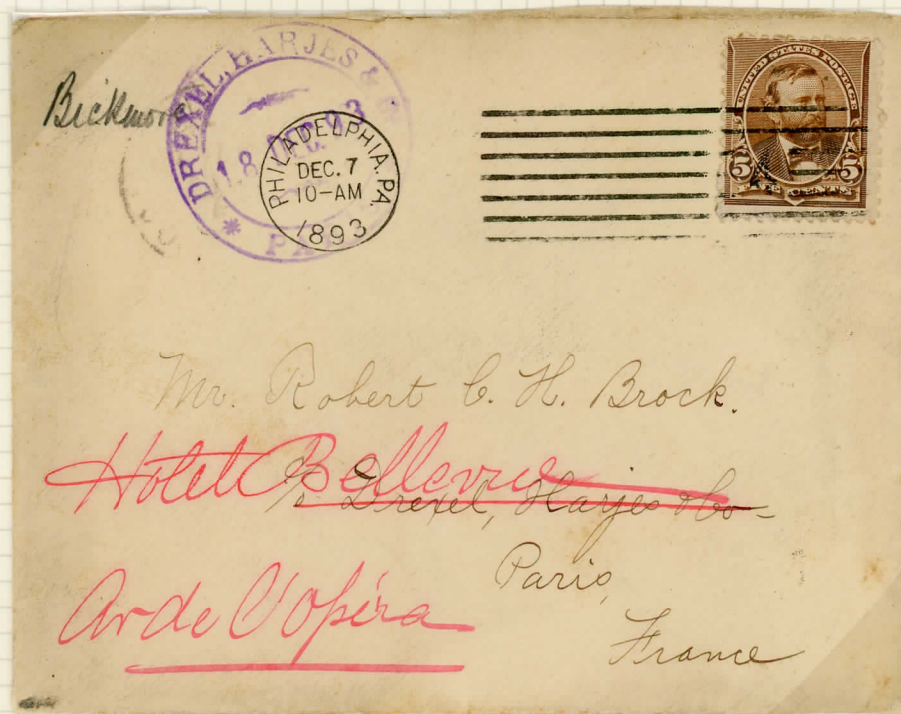 Bickmore
DREXEL, HARJES & Co
18 DEC. 93
* PARIS
PHILADELPHIA, PA.
DEC. 7
10-AM
1893
UNITED STATES POSTAGE
5 5
FIVE CENTS
Mr. Robert C. H. Brock.
Hotel Bellevue
c/o Drexel, Harjes & Co-
Paris,
Av de l'opéra
France